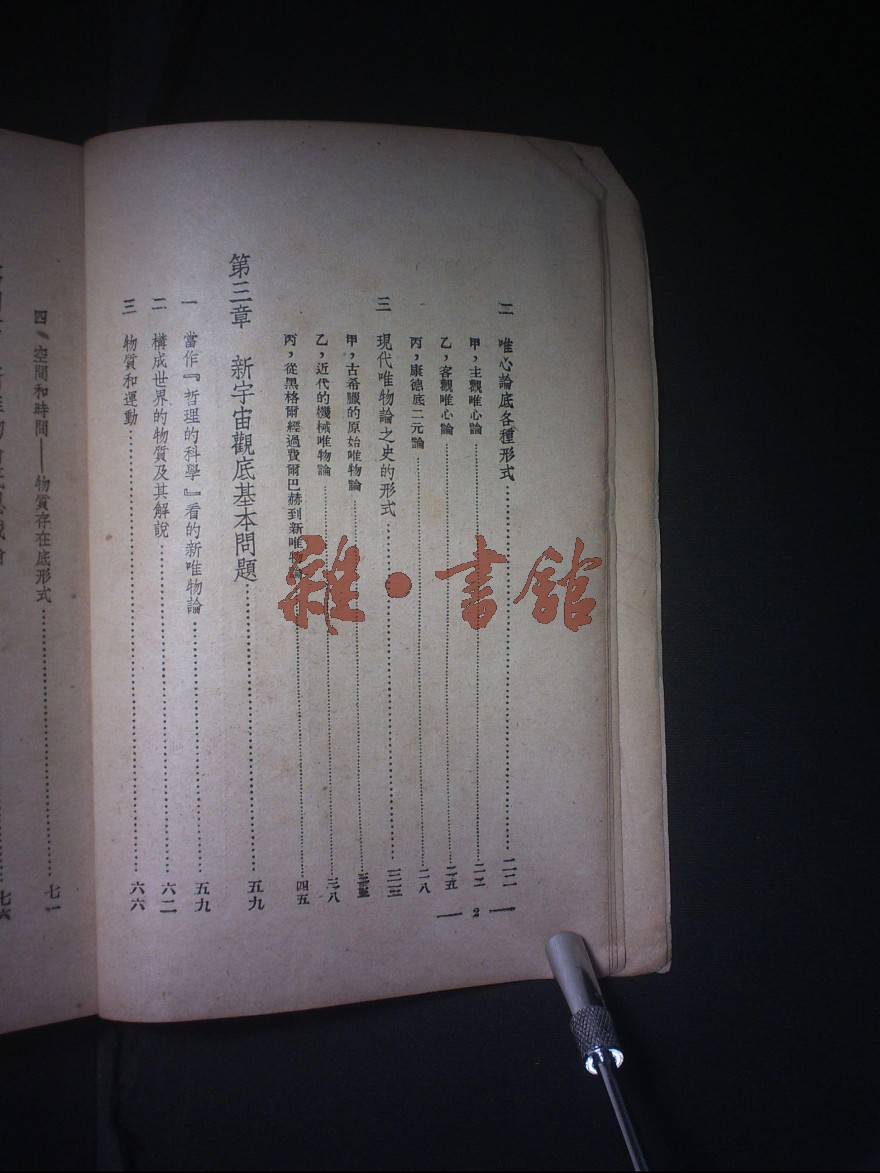 二 唯心論底各種形式……二二
甲，主觀唯心論……二二
乙，客觀唯心論……二五
丙，康德底二元論……二八
三 現代唯物論之史的形式……三三
甲，古希臘的原始唯物論……三五
乙，近代的機械唯物論……三八
丙，從黑格爾經過費爾巴赫到新唯物論……四五
第三章 新宇宙觀底基本問題……五九
一 當作『哲理的科學』看的新唯物論……五九
二 構成世界的物質及其解說……六二
三 物質和運動……六六
— 2 —
四 空間和時間——物質存在底形式……七一
七六
雜·書館